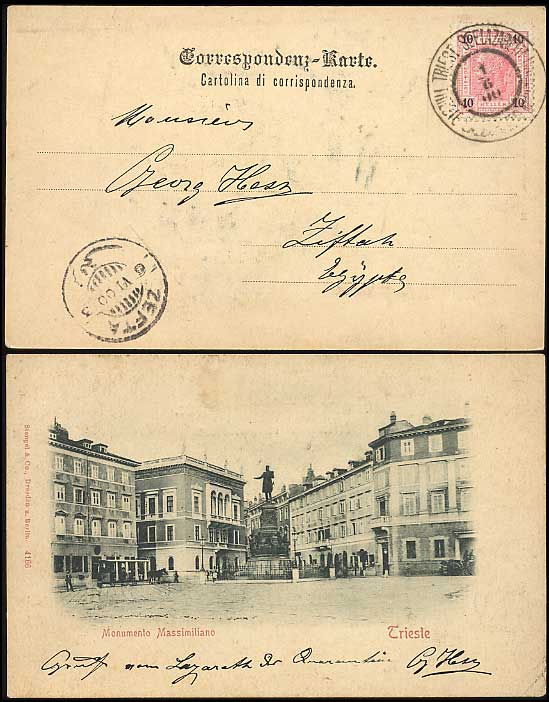 Correspondenz-Karte.
Cartolina di corrispondenza.
10 10
10 10
TRIEST TRIESTE
1
6
00
Monsieur
Georg Hess
Ziftah
Egypte
ZEFTA
VI 00
Stengel & Co., Dresden u. Berlin. 4166
Monumento Massimiliano Trieste
Gruß vom Lazareth der Quarantäne Gg Hess